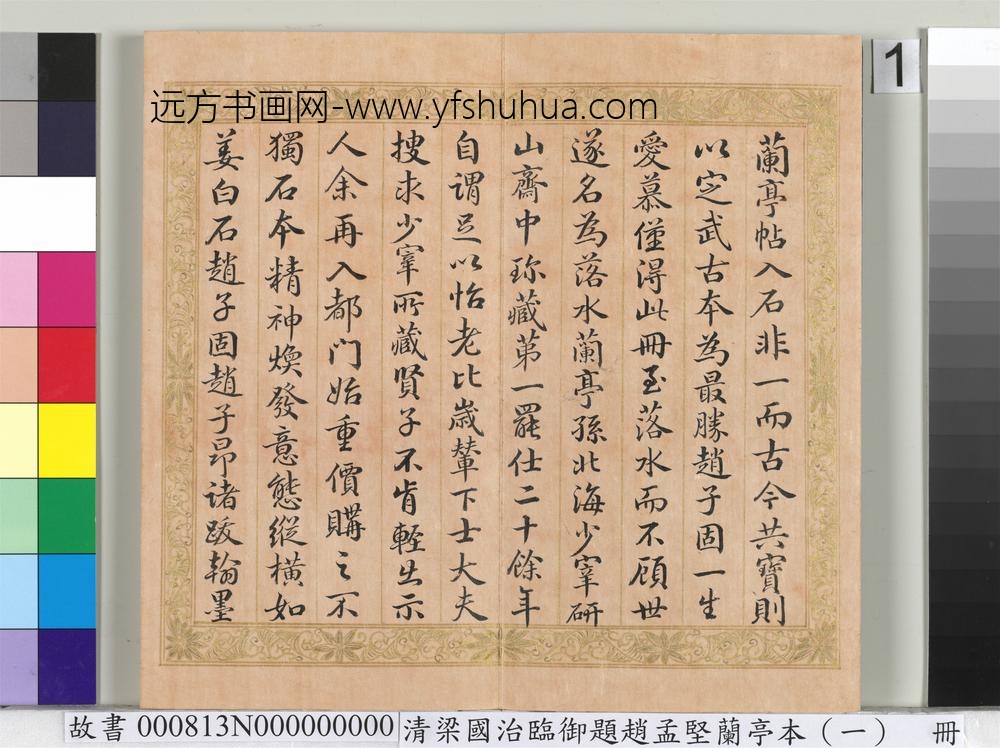 远方书画网-www.yfshuhua.com
1
蘭亭帖入石非一而古今共寶則
以定武古本為最勝趙子固一生
愛慕僅得此冊至落水而不顧世
遂名為落水蘭亭孫北海少宰研
山齋中珎藏第一罷仕二十餘年
自謂足以怡老比歲輦下士大夫
搜求少宰所藏賢子不肯輕出示
人余再入都門始重價購之不
獨石本精神煥發意態縱橫如
姜白石趙子固趙子昂諸跋翰墨
故書 000813N000000000 清梁國治臨御題趙孟堅蘭亭本（一） 冊